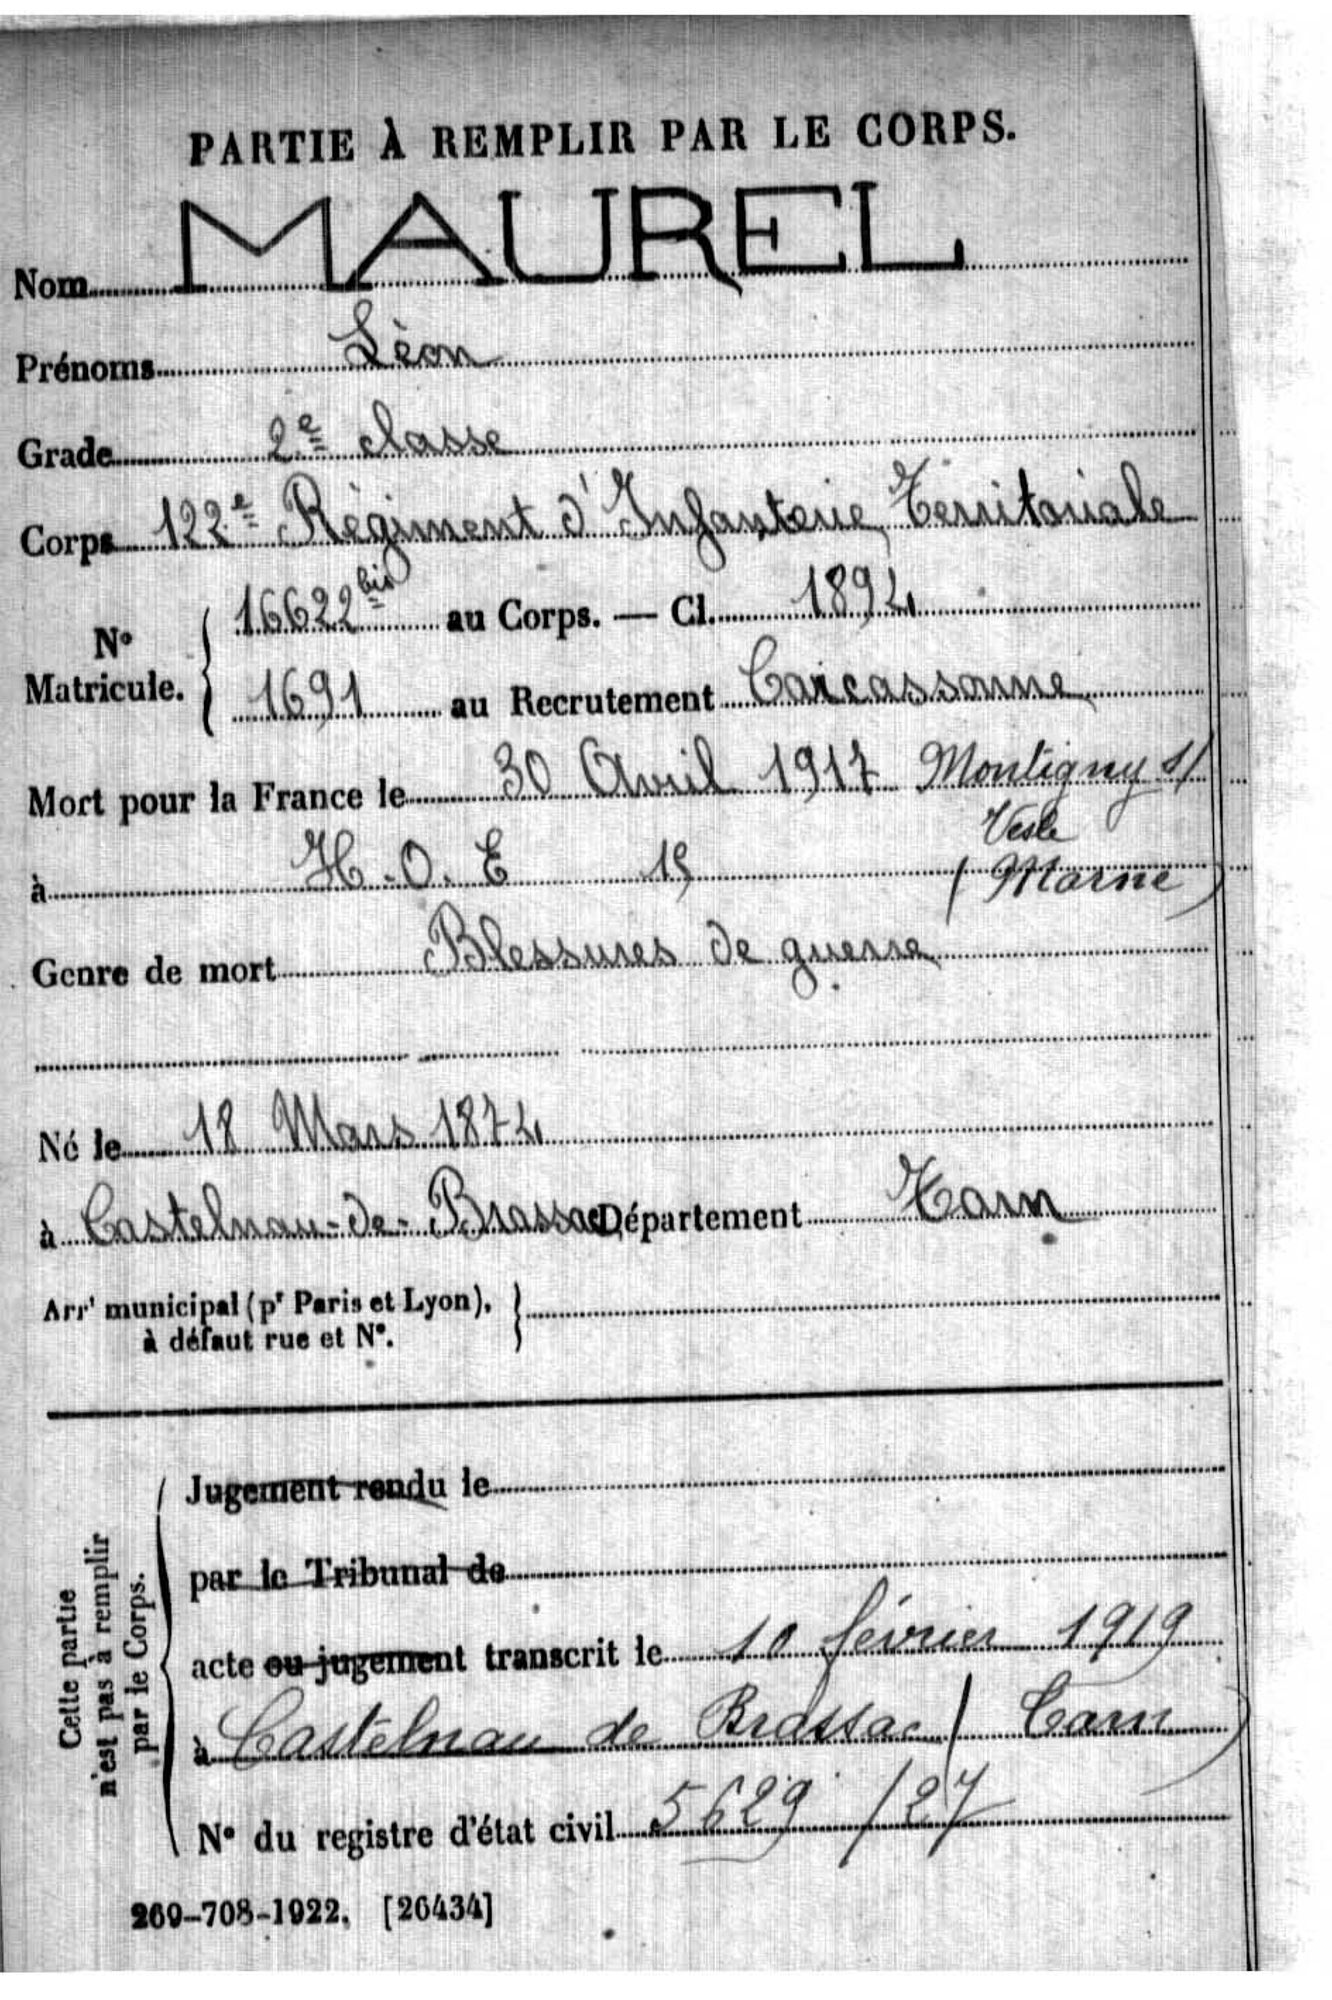 PARTIE À REMPLIR PAR LE CORPS.
Nom MAUREL
Prénoms Léon
Grade 2e classe
Corps 122e Régiment d'Infanterie Territoriale
N° Matricule. { 16622 bis au Corps. — Cl. 1894
1691 au Recrutement Carcassonne
Mort pour la France le 30 Avril 1917 Montigny s/
Vesle
à H.O.E 15 (Marne)
Genre de mort Blessures de guerre
Né le 18 Mars 1874
à Castelnau-de-Brassac Département Tarn
Arrt municipal (pr Paris et Lyon),
à défaut rue et N°.
Cette partie
n'est pas à remplir
par le Corps.
Jugement rendu le
par le Tribunal de
acte ou jugement transcrit le 10 février 1919
à Castelnau de Brassac (Tarn)
N° du registre d'état civil 5629/27
269-708-1922. [26434]